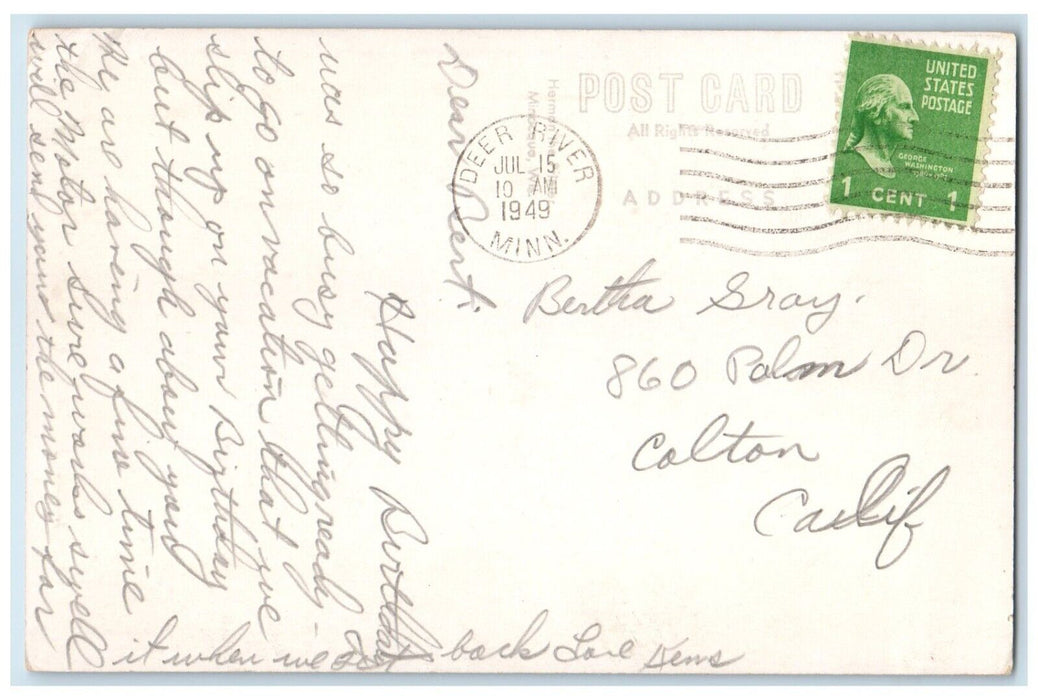 POST CARD
All Rights Reserved
ADDRESS
DEER RIVER
JUL 15
10 AM
1949
MINN.
UNITED
STATES
POSTAGE
GEORGE
WASHINGTON
1 CENT 1
Bertha Gray.
860 Palm Dr.
Colton
Calif
Dear Bert.
Happy Birthday
was so busy getting ready
to go on vacation that we
slip up on your Birthday
but though about you
We are having a fine time
the Motor sure works swell
will send you the money for
it when we get back Love Kems